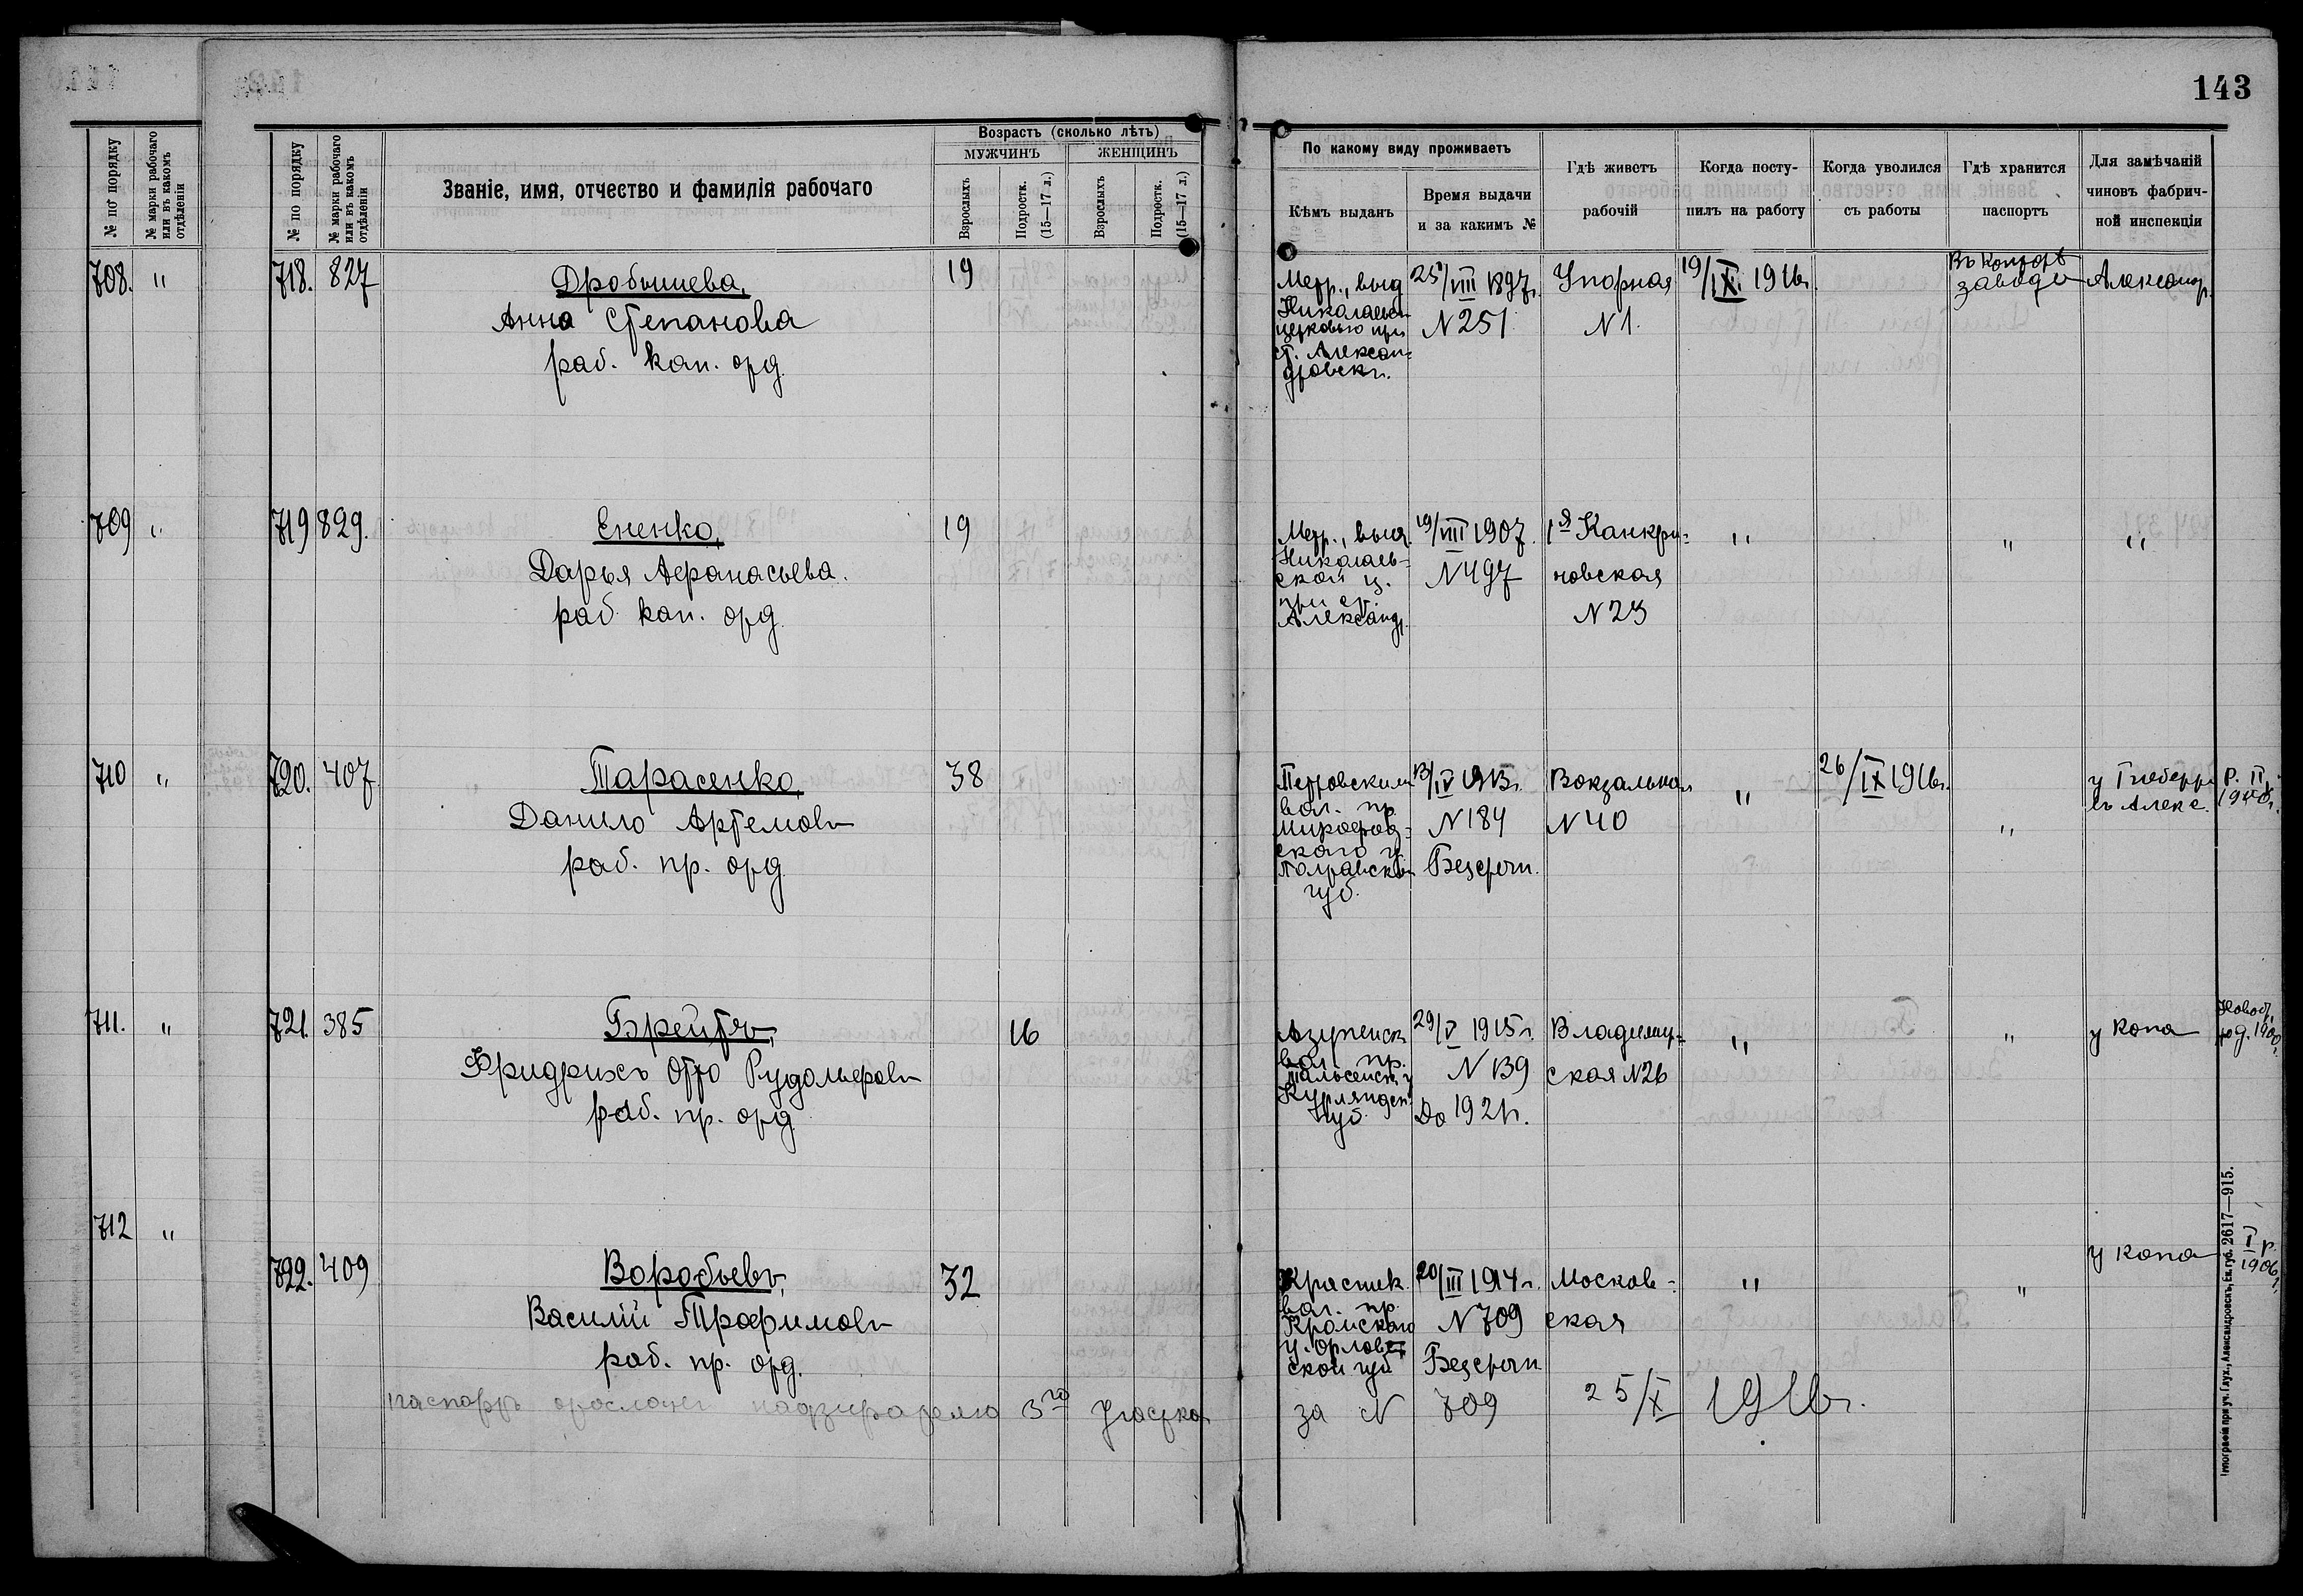 143
№ по порядку
№ марки рабочаго или въ какомъ отдѣленіи
708. "
709 "
710 "
711. "
712 "
№ по порядку
№ марки рабочаго или въ какомъ отдѣленіи
Званіе, имя, отчество и фамилія рабочаго
Возрастъ (сколько лѣтъ)
МУЖЧИНЪ
ЖЕНЩИНЪ
Взрослыхъ
Подростк. (15—17 л.)
Взрослыхъ
Подростк. (15—17 л.)
По какому виду проживаетъ
Кѣмъ выданъ
Время выдачи
и за какимъ №
Гдѣ живетъ
рабочій
Когда посту-
пилъ на работу
Когда уволился
съ работы
Гдѣ хранится
паспортъ
Для замѣчаній
чиновъ фабрич-
ной инспекціи
718. 827
Дробышева,
Анна Степанова
раб. кап. орд.
19
Метр., выд
Николаевск
церковью при
ст. Алексан-
дровскъ.
25/VIII 1897г.
N 251
Упорная
N 1.
19/IX 1916г.
Въ конторѣ
завода
Александр.
719 829.
Ененко,
Дарья Афанасьева.
раб. кап. орд.
19
Метр., выд.
Николаев-
ской ц.
при ст.
Александр.
19/VIII 1907.
N 497
1я Канкри-
новская
N 23
"
"
"
720. 407
Тарасенко,
Данило Артемовъ
раб. пр. орд.
38
Петровскимъ
вол. пр.
Миргород-
скаго у.
Полтавской
губ.
13/IV 1913г.
N 184
Безсрочн.
Вокзальная
N 40
"
26/IX 1916г.
"
въ Алекс.
р. II,
721. 385
Брейтъ,
Фридрихъ Отто Рудольфовъ
раб. пр. орд.
16
вол. пр.
Тальсенск. у
Курляндск.
губ.
29/V 1915г.
N 139
До 1921г.
Владимир-
ская N 26
"
"
у копа
год. 1900г.
722. 409
Воробьевъ,
Василій Трофимовъ
раб. пр. орд.
32
вол. пр.
Кромскаго
у. Орлов-
ской губ
20/III 1914г.
N 709
Безсрочн
Москов-
ская
"
"
у копа
I р.
1906г.
паспортъ отосланъ надзирателю 3го участка за N 709 25/X 1916г.
Типографія при уч. Глух., Александровскъ, Ек. губ. 2617—915.